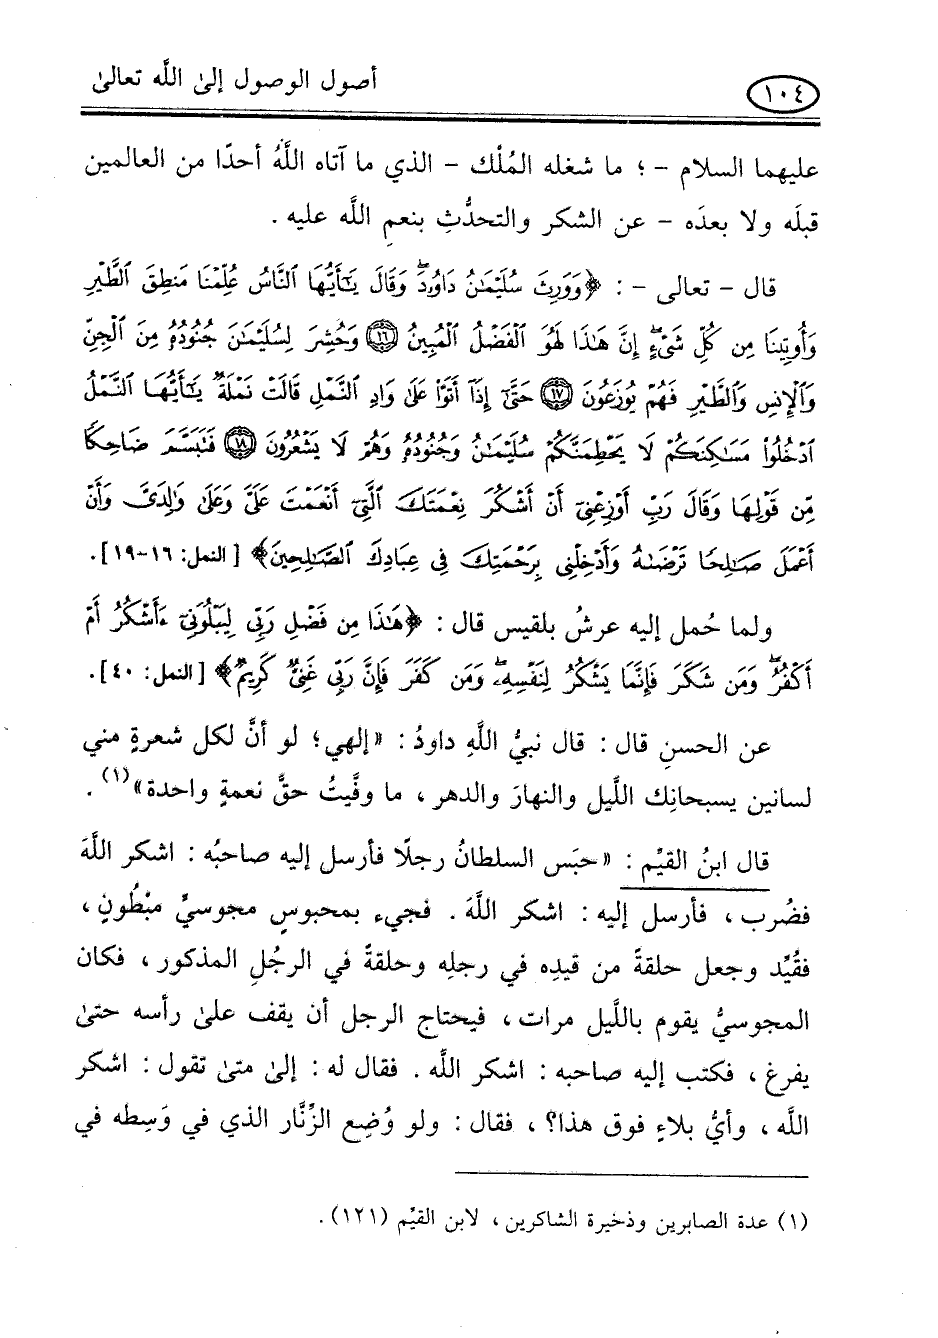 ١٠٤ أصول الوصول إلىٰ اللَّه تعالىٰ
عليهما السلام - ؛ ما شغله المُلْك - الذي ما آتاه اللَّهُ أحدًا من العالمين
قبلَه ولا بعدَه - عن الشكر والتحدُّثِ بنعمِ اللَّه عليه .
قال - تعالى - : ﴿وَوَرِثَ سُلَيْمَٰنُ دَاوُۥدَۖ وَقَالَ يَٰٓأَيُّهَا ٱلنَّاسُ عُلِّمْنَا مَنطِقَ ٱلطَّيْرِ
وَأُوتِينَا مِن كُلِّ شَىْءٍۖ إِنَّ هَٰذَا لَهُوَ ٱلْفَضْلُ ٱلْمُبِينُ ١٦ وَحُشِرَ لِسُلَيْمَٰنَ جُنُودُهُۥ مِنَ ٱلْجِنِّ
وَٱلْإِنسِ وَٱلطَّيْرِ فَهُمْ يُوزَعُونَ ١٧ حَتَّىٰٓ إِذَآ أَتَوْا۟ عَلَىٰ وَادِ ٱلنَّمْلِ قَالَتْ نَمْلَةٌ يَٰٓأَيُّهَا ٱلنَّمْلُ
ٱدْخُلُوا۟ مَسَٰكِنَكُمْ لَا يَحْطِمَنَّكُمْ سُلَيْمَٰنُ وَجُنُودُهُۥ وَهُمْ لَا يَشْعُرُونَ ١٨ فَتَبَسَّمَ ضَاحِكًا
مِّن قَوْلِهَا وَقَالَ رَبِّ أَوْزِعْنِىٓ أَنْ أَشْكُرَ نِعْمَتَكَ ٱلَّتِىٓ أَنْعَمْتَ عَلَىَّ وَعَلَىٰ وَٰلِدَىَّ وَأَنْ
أَعْمَلَ صَٰلِحًا تَرْضَىٰهُ وَأَدْخِلْنِى بِرَحْمَتِكَ فِى عِبَادِكَ ٱلصَّٰلِحِينَ﴾ [النمل: ١٦-١٩].
ولما حُمل إليه عرشُ بلقيس قال : ﴿هَٰذَا مِن فَضْلِ رَبِّى لِيَبْلُوَنِىٓ ءَأَشْكُرُ أَمْ
أَكْفُرُۖ وَمَن شَكَرَ فَإِنَّمَا يَشْكُرُ لِنَفْسِهِۦۖ وَمَن كَفَرَ فَإِنَّ رَبِّى غَنِىٌّ كَرِيمٌ﴾ [النمل: ٤٠].
عن الحسنِ قال : قال نبيُّ اللَّهِ داودُ : «إلهي؛ لو أنَّ لكل شعرةٍ مني
لسانين يسبحانِك اللَّيل والنهارَ والدهر ، ما وفَّيتُ حقَّ نعمةٍ واحدة»(١) .
قال ابنُ القيِّم : «حبَس السلطانُ رجلًا فأرسل إليه صاحبُه : اشكر اللَّهَ
فضُرب ، فأرسل إليه : اشكر اللَّهَ . فجيء بمحبوسٍ مجوسيٍّ مبْطُونٍ ،
فقُيِّد وجعل حلقةً من قيدِه في رجلِه وحلقةً في الرجُلِ المذكور ، فكان
المجوسيُّ يقوم باللَّيل مرات ، فيحتاج الرجل أن يقف علىٰ رأسه حتىٰ
يفرغ ، فكتب إليه صاحبه : اشكر اللَّه . فقال له : إلىٰ متىٰ تقول : اشكر
اللَّه ، وأيُّ بلاءٍ فوق هذا؟ ، فقال : ولو وُضِع الزِّنَّار الذي في وَسِطه في
(١) عدة الصابرين وذخيرة الشاكرين ، لابن القيِّم (١٢١) .